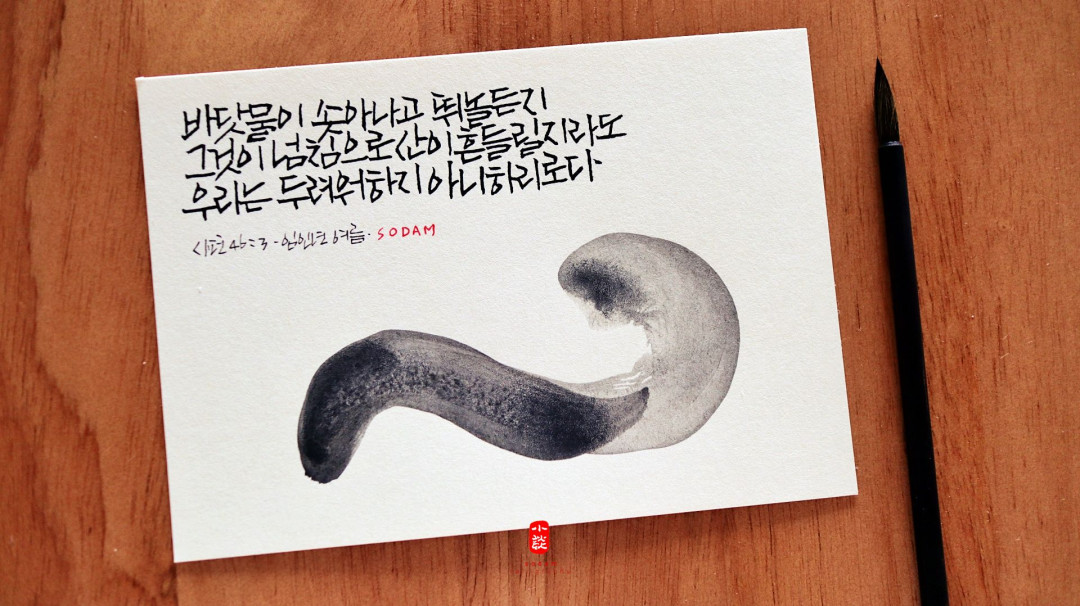 바닷물이 솟아나고 뛰놀든지
그것이 넘침으로 산이 흔들릴지라도
우리는 두려워하지 아니하리로다
시편 46:3 - 임인년 여름 · SODAM